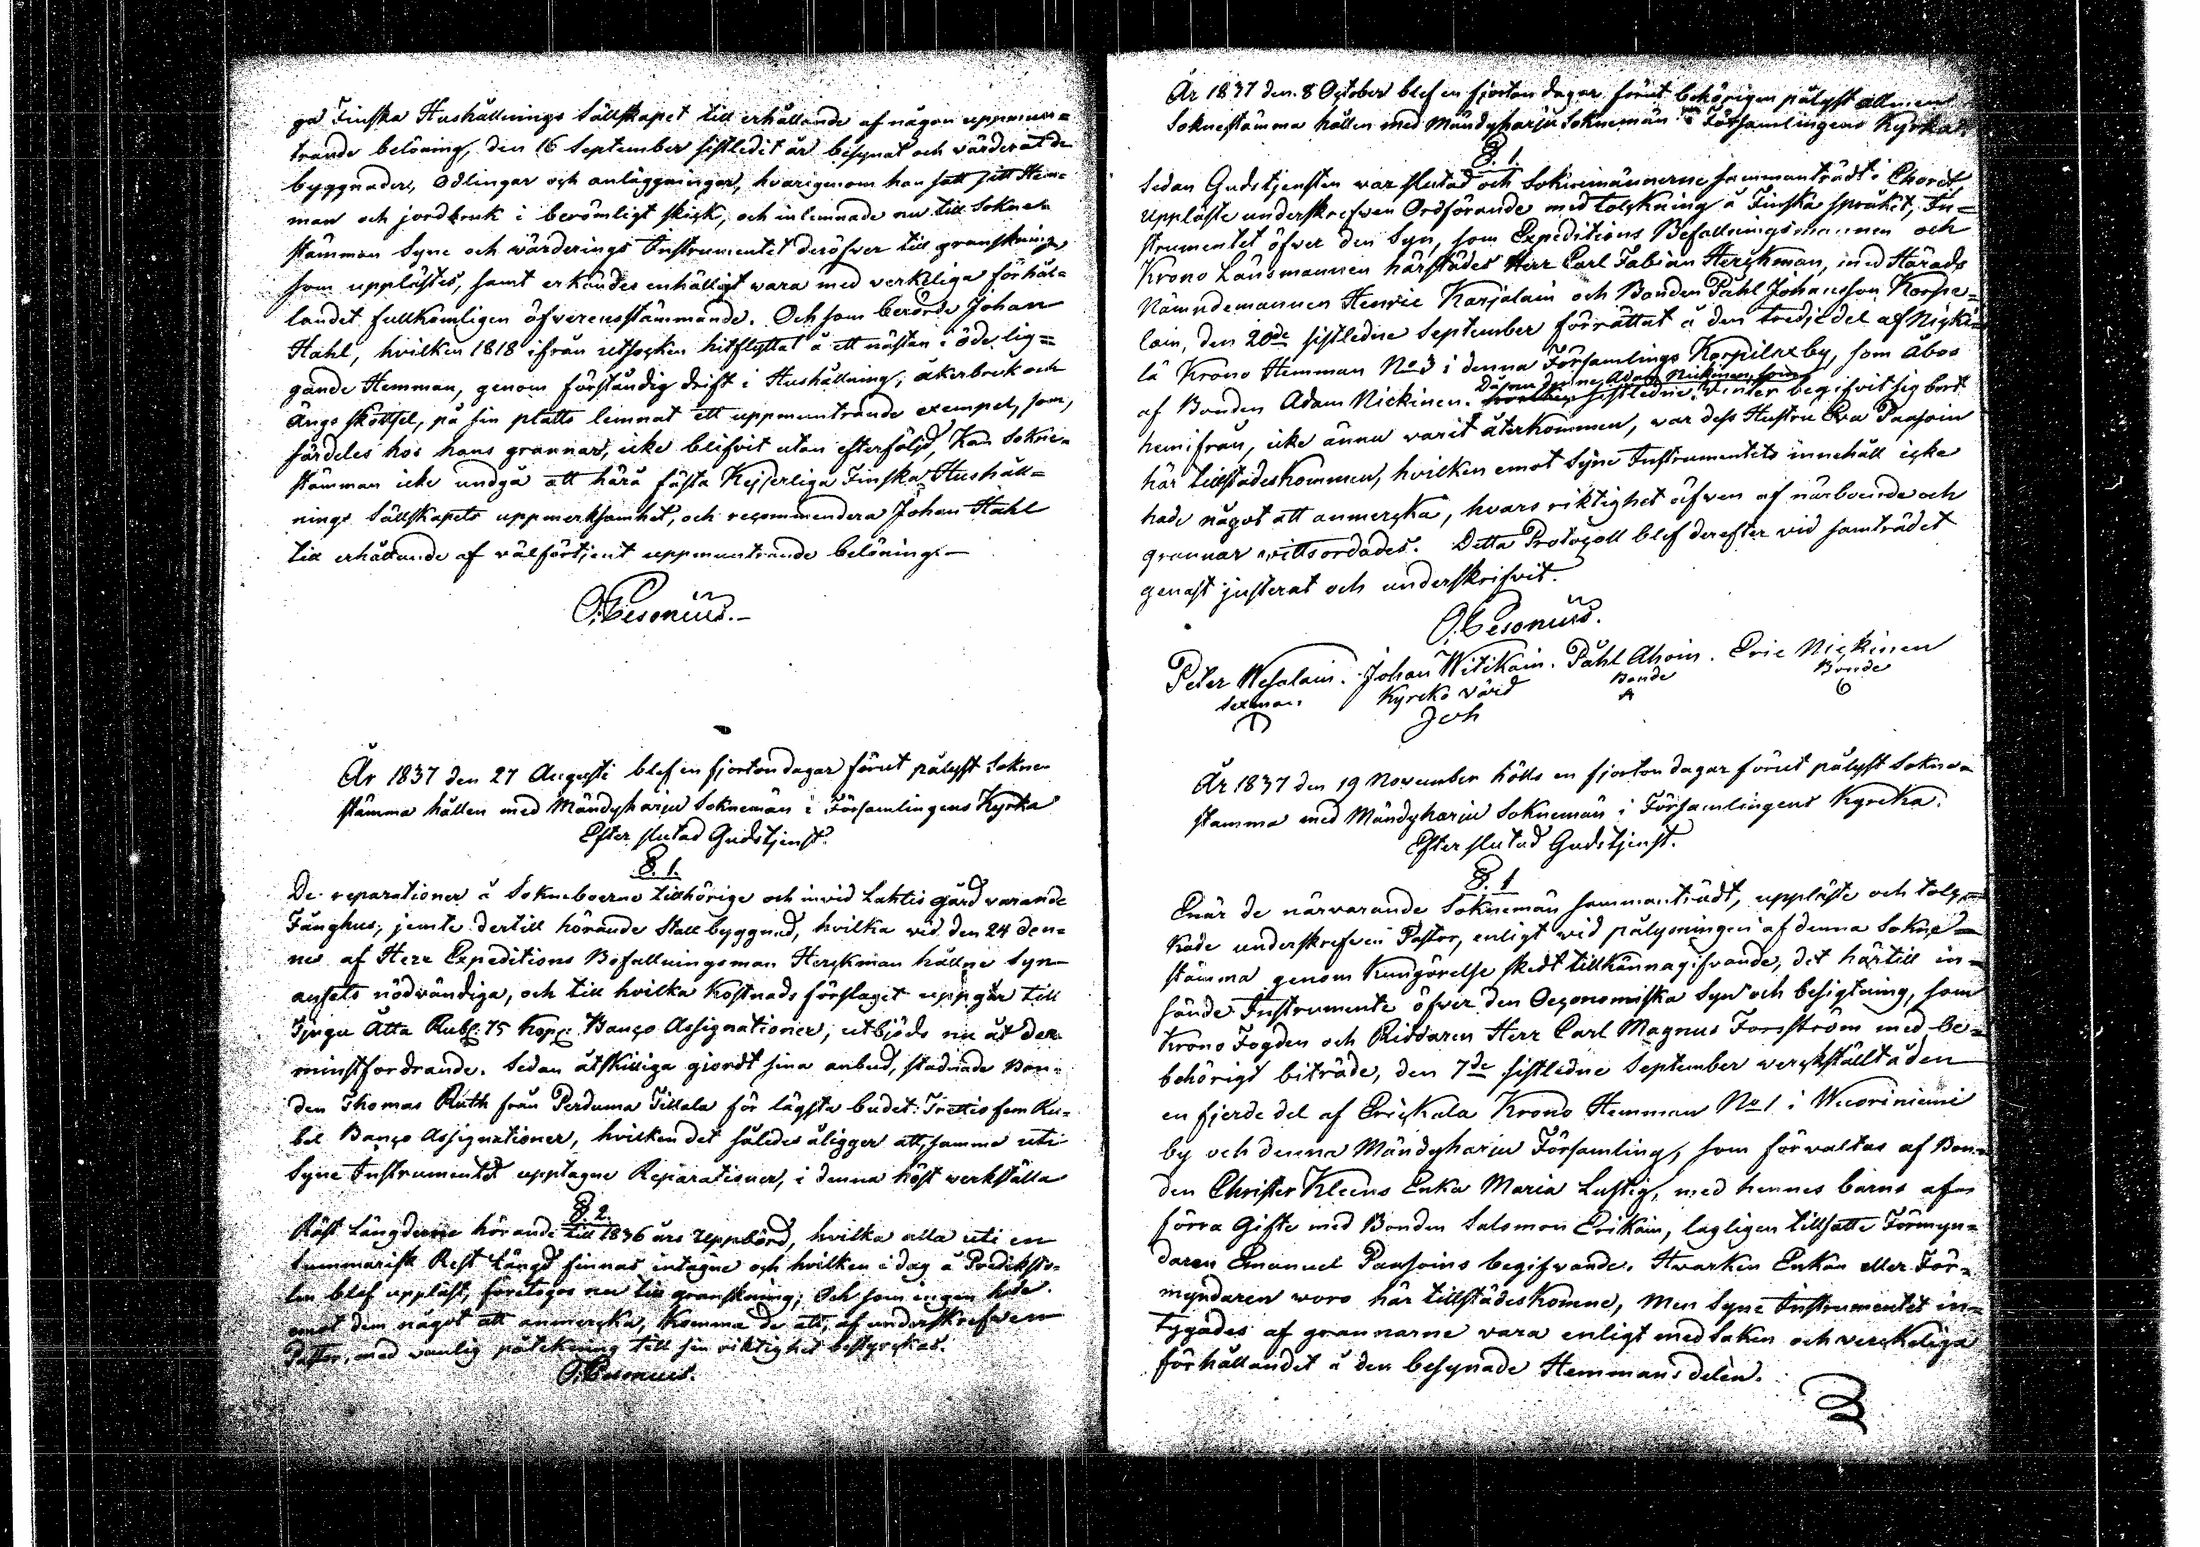 ga Finska Hushållnings Sällskapet till erhållande af någon uppmun=
trande belöning, den 16 September sistledit år besynat och värderat de
byggnader, Odlingar och anläggningar, hvarigenom han satt sitt Hem=
man och jordbruk i berömligt skick, och inlemnade nu till Sokne-
stämman Syne och wärderings Instrumentet deröfver till granskning
som upplästes, samt erkändes enhälligt wara med verkeliga förhål=
landet fullkomligen öfverensstämmande. Och som berörde Johan
Ståhl, hvilken 1818 ifrån utsocken hitflyttat å ett nästan i öde lig=
gande Hemman, genom förståndig drift i Hushållning, åkerbruk och
Ängsskötsel, på sin platts lemnat ett uppmuntrande exempel, som,
särdeles hos hans grannar, icke blifvit utan efterföljd, kan Sokne-
stämman icke undgå att härå fästa Kejserliga Finska Hushåll=
nings Sällskapets uppmerksamhet, och recommendera Johan Ståhl
till erhållande af välförtjent uppmuntrande belöning.—
O. Cesonius.—
År 1837 den 27 Augusti blef en fjorton dagar förut pålyst Sokne-
stämma hållen med Mändyharju Soknemän i Församlingens Kyrka
Efter slutad Gudstjenst.
§. 1.
De reparationer å Sokneboerne tillhörige och invid Lahtis gård varande
Fånghus, jemte dertill hörande Stall byggnad, hvilka vid den 24 den=
nes af Herr Expeditions Befallningsman Herckman hållne Syn
ansets nödvändiga, och till hvilka kostnads förslaget uppgår till
Tjugu Åtta Rubl. 75 Kop. Banco Assignationer, utbjöds nu åt den
minstfordrande. Sedan åtskilliga giordt sina anbud, stadnade Bon=
den Thomas Räth från Perduma Tillala för lägsta budet: Trettio fem Ru=
bel Banco Assignationer, hvilken det således åligger att, samma uti
Syne Instrumentet upptagne Reparationer, i denna höst werkställa
§ 2.
Räst Längderne hörande till 1836 års Uppbörd, hvilka alla uti en
Summarisk Rest Längd finnas intagne och hvilken i dag å Prediksto-
len blef uppläst, företogos nu till granskning; Och som ingen hade
emot dem något att anmercka, komma de att, af underskrefven
Pastor, med vanlig påtekning till sin riktighet bestyrckas.
O. Cesonius.
År 1837 den 8 October blef en fjorton dagar förut behörigen pålyst allmen
Soknestämma hållen med Mändyharju Soknemän i Församlingens Kyrka
§. 1.
Sedan Gudstjensten var slutad och Soknemännerne sammanträdt i Choret,
uppläste underskrefven Ordförande med tolckning å Finska språket, In=
strumentet öfver den Syn, som Expeditions Befallningsmannen och
Krono Länsmannen härstädes Herr Carl Fabian Herckman, med Härads
Nämndemannen Henric Karjalain och Bonden Påhl Johansson Korpe=
lain, den 20de sistledne September förrättat å den tredjedel af Nicki=
lä Krono Hemman No 3 i denna Församlings Karpilax by, som Åbos
af Bonden Adam Nickinen. Då som denne Adam Nickinen, som
sistledne vinter begifvit sig bort
hemifrån, icke ännu varit återkommen, var dess Hustru Eva Paasoin
här tillstädeskommen, hvilken emot Syne Instrumentets innehåll icke
hade något att anmercka, hvars riktighet äfven af närboende och
grannar wittsordades. Detta Protocoll blef derefter vid samträdet
genast justerat och underskrifvit.
O. Cesonius.
Peter Wesalain. Johan Witikain. Påhl Ahoin. Eric Nickinen
Sexman. Kyrko värd Bonde Bonde
Joh
År 1837 den 19 November hölls en fjorton dagar förut pålyst Sokne-
stamma med Mändyharju Soknemän i Församlingens Kyrcka.
Efter slutad Gudstjenst.
§. 1
Enär de närvarande Soknemän sammanträdt, uppläste och tolc=
kade underskrefven Pastor, enligt vid pålysningen af denna Sokne=
stämma genom Kungörelse skedt tillkännagifvande, det härtill in=
sände Instrumente öfver den Oeconomiska Syn och besigtning, som
Krono Fogden och Riddaren Herr Carl Magnus Forsström med be=
behörigt biträde, den 7de sistledne September werckställt å den
en fjerde del af Erickala Krono Hemman No 1 i Wuoriniemi
by och denna Mändyharju Församling, som förvaltas af Bon=
den Christer Kleens Enka Maria Lustig, med hennes barns af
förra Gifte med Bonden Salomon Erikain, lagligen tillsatte Förmyn=
daren Emanuel Pansoins begifvande. Hwarken Enkan eller För=
myndaren woro här tillstädeskomne, Men Syne Instrumentet in=
tygades af grannarne vara enligt med Saken och verckeliga
förhållandet å den besynade Hemmansdelen.